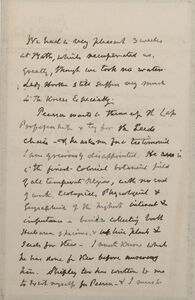 We had a very pleasant 3 weeks
at Bath, which recuperated us,
greatly, though we took no waters.
Lady Hooker still suffers very much
in the knees especially.
Pearson wants to throw up the Cape
Professorship & try for the Leeds
chair — & he asks me for testimonial
I am grievously disappointed. He is
in the finest Colonial botanical field
of all temperate regions, with no end
of work, Ecological, Physiological &
Geographical of the highest interest &
importance — besides collecting both
Herbarium specimens, & living plants &
Seeds for Kew — I must know what
he has done for Kew before answering
him. Shipley too has written to me
to exert myself for Pearson — & I must